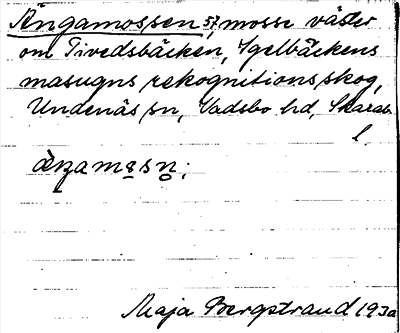 Ängamossen 57, mosse väster
om Tivedsbäcken, Igelbäckens
masugns rekognitionsskog,
Undenäs sn, Vadsbo hd, Skarab.
l.
Maja Bergstrand 193